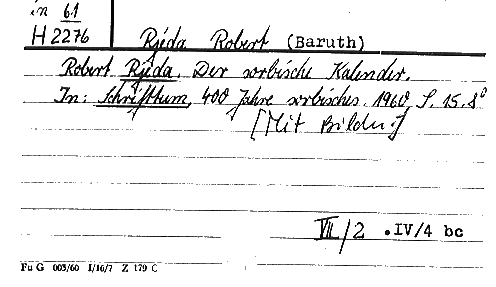 in 61
H 2276
Rjeda Robert (Baruth)
Robert Rjeda. Der sorbische Kalender.
In: Schrifttum, 400 Jahre sorbisches. 1960 S. 15. 8°
[Mit Bildn.]
VII/2 . IV/4 bc
Fu G 003/60 I/16/7 Z 179 C